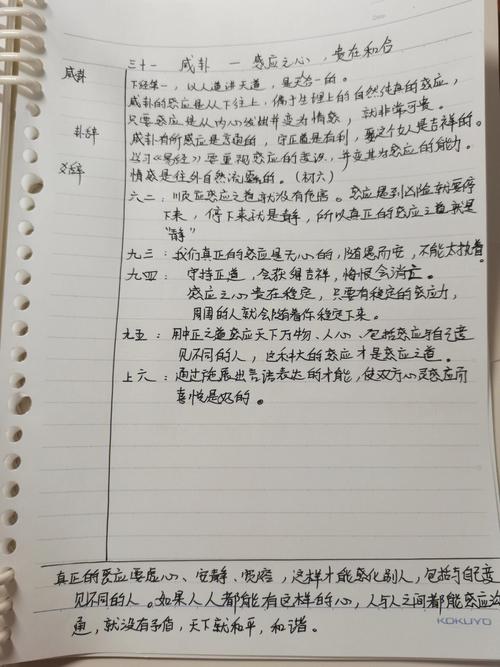 三十一 咸卦 — 感应之心，贵在和合
咸卦
下经第一，以人道讲天道，是天合一的。
咸卦的感应是从下往上，偏于生理上的自然纯真的感应，
只要感应是从内心发出并变为情感，就非常可贵。
卦辞
咸卦有所感应是亨通的，守正道是有利，娶这个女人是吉祥的。
爻辞
学习《易经》要重视感应的变设，并变其为感应的能力。
情感是往外自然流露的。（初六）
六二：顺应感应之道就没有危害。感应遇到凶险就要停
下来，停下来就是静，所以真正的感应之道就是
“静”
九三：我们真正的感应是无心的，随遇而安，不能太执着。
九四：守持正道，会获得吉祥，悔恨会消亡。
感应之心贵在稳定，只要有稳定的感应力，
周围的人就会随着你稳定下来。
九五：用中正之道感应天下万物、人心、包括感应与自己意
见不同的人，这种大的感应才是感应之道。
上六：通过施展出言语表达的才能，使双方心灵感应而
喜悦是好的。
真正的感应要虚心、安静、宽容，这样才能感化别人，包括与自己意
见不同的人。如果人人都能有这样的心，人与人之间都能感应沟
通，就没有矛盾，天下就和平，和谐。
KOKUYO